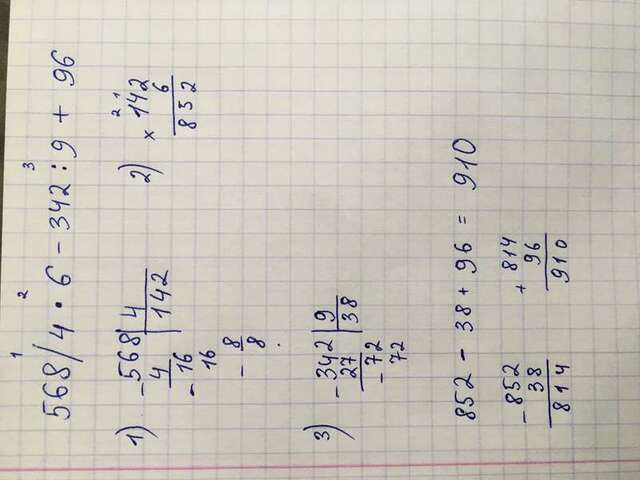 1 2 3
568/4 · 6 - 342 : 9 + 96
1) -568|4
4 142
-16
16
-8
8
2) 2 1
× 142
6
852
3) -342|9
27 38
-72
72
852 - 38 + 96 = 910
-852
38
814
+ 814
96
910